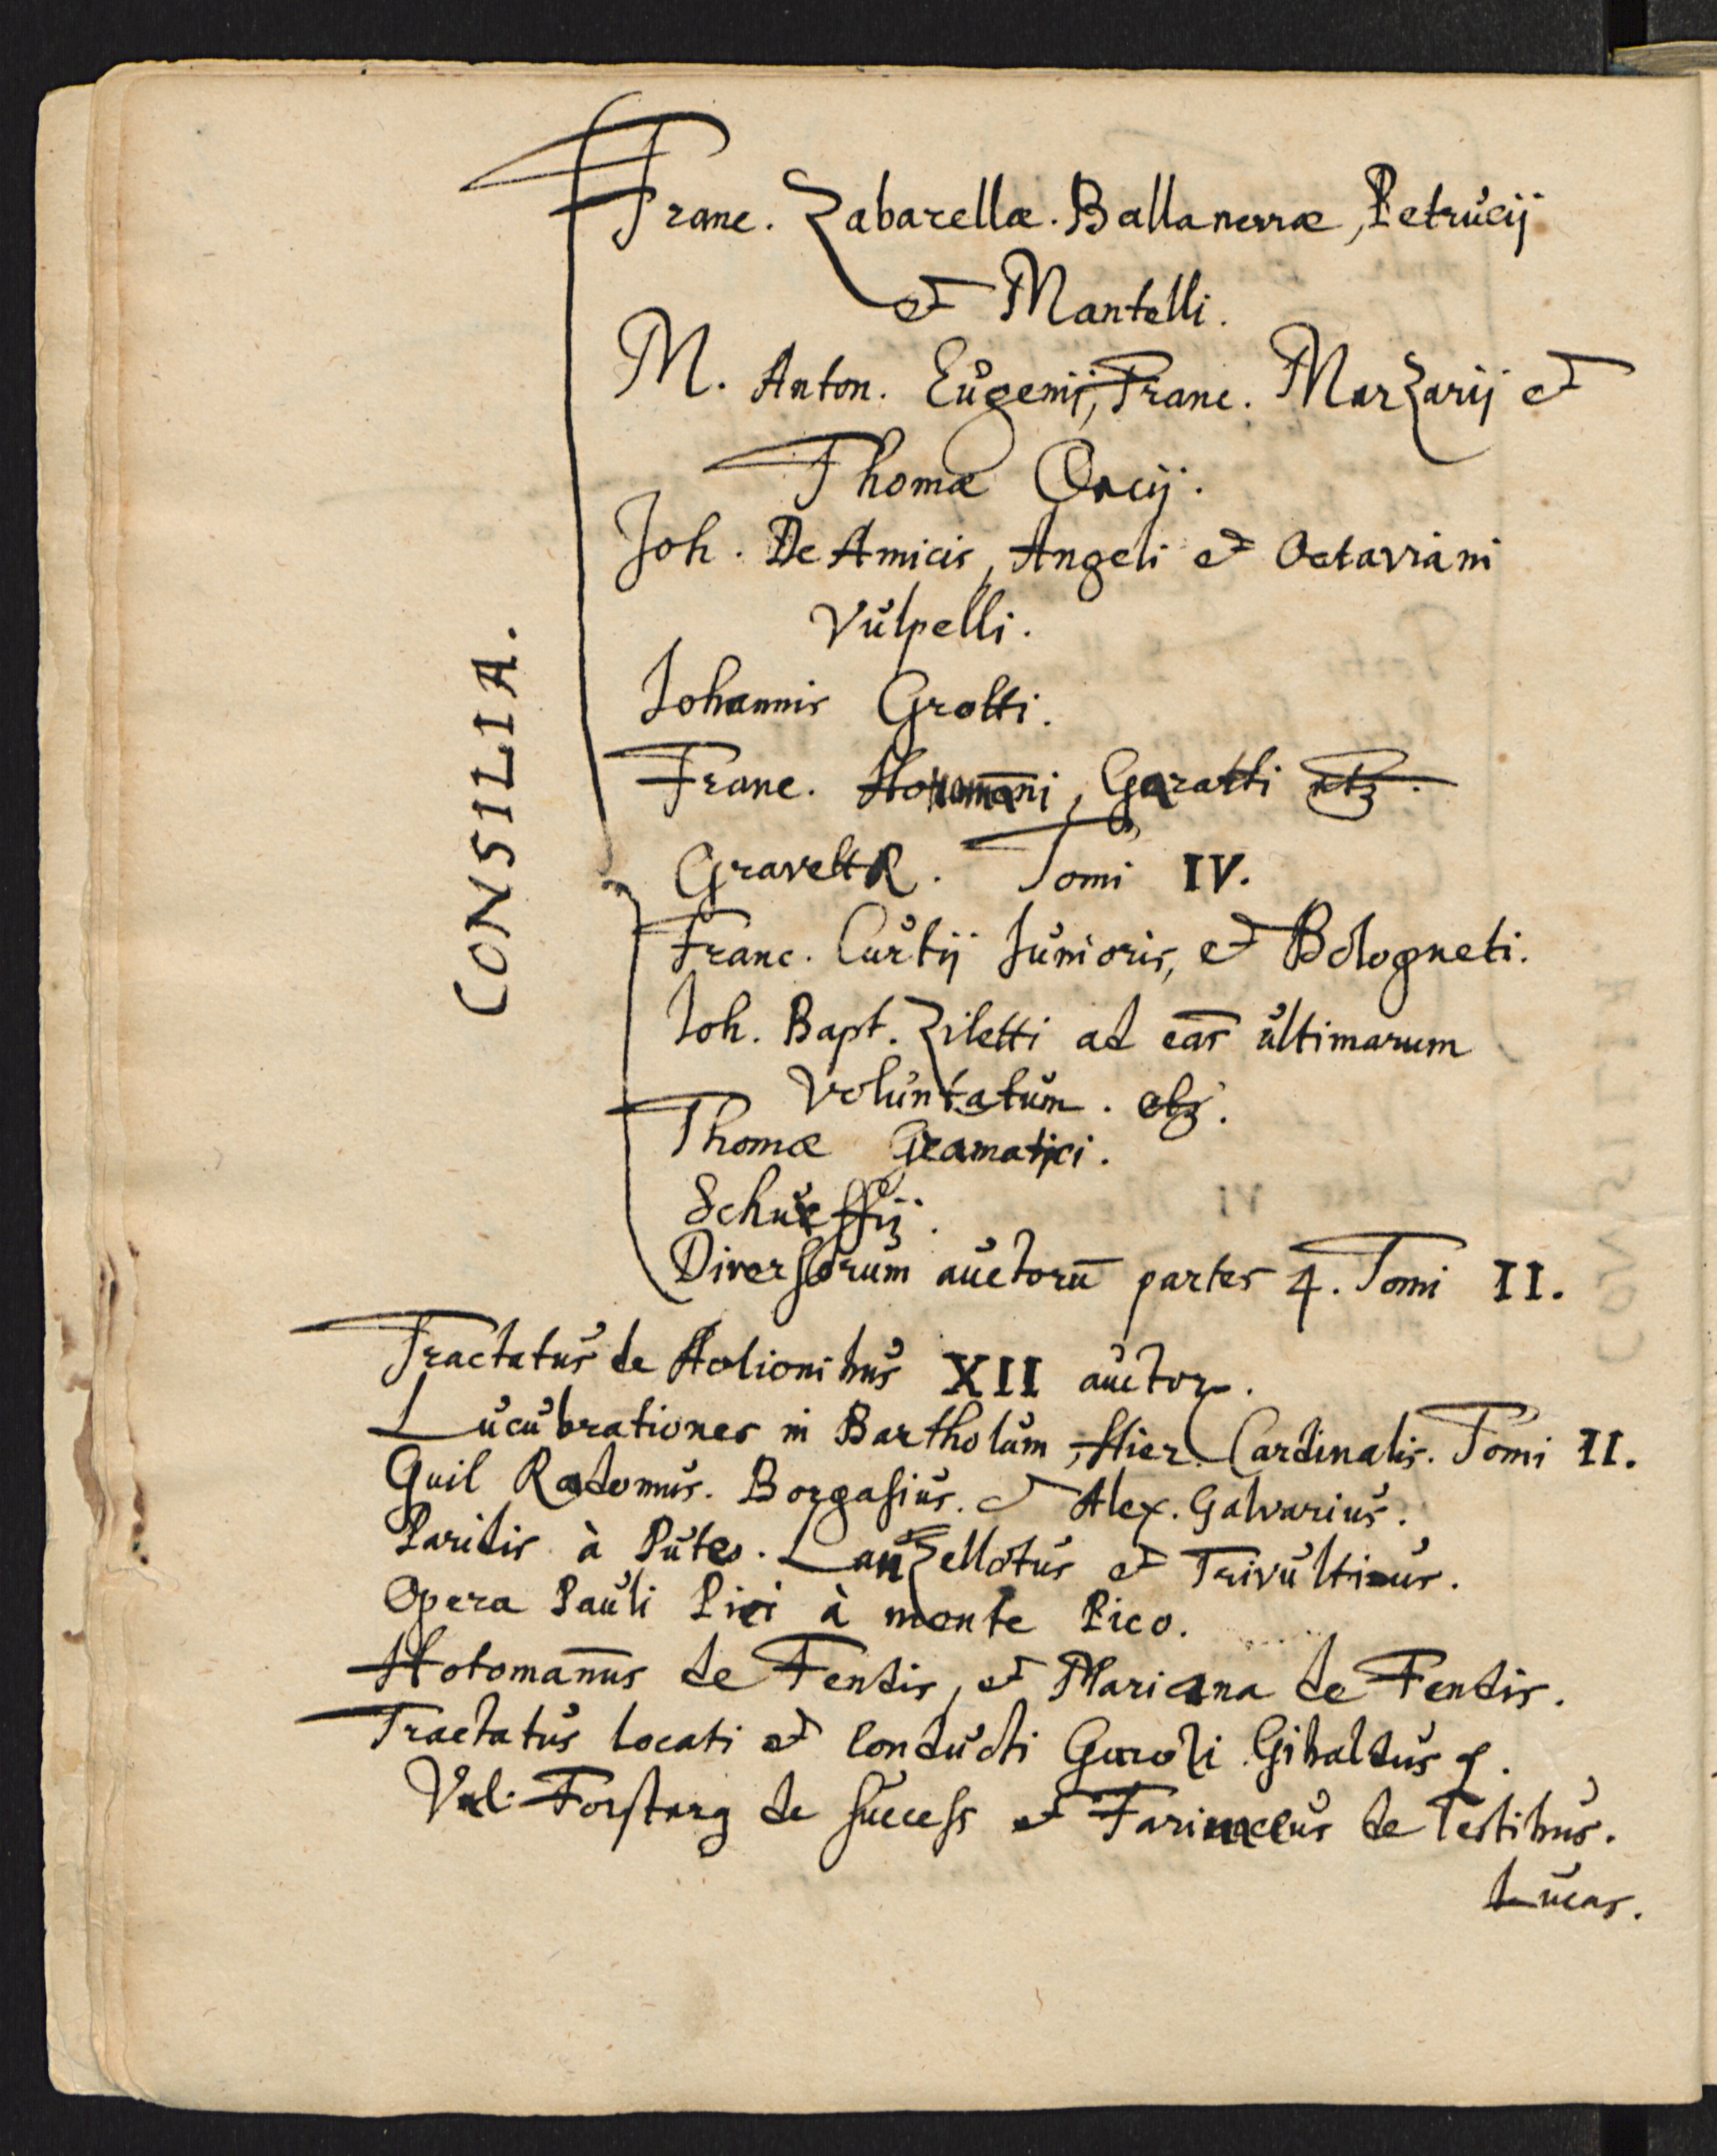 CONSILIA.
Franc. Zabarellæ. Ballanerræ, Petrucij
et Mantelli.
M. Anton. Eugenij, Franc. Marzarij et
Thomæ Oncij.
Joh. De Amicis, Angeli et Octaviani
Vulpelli.
Johannis Grotti.
Franc. Hotomāni, Garatti etz.
Gravettæ. Tomi IV.
Franc. Curtij Junioris, et Bologneti.
Joh. Bapt. Ziletti ad eas ultimarum
voluntatum. etz.
Thomæ Gramatici.
Schurffij.
Diversorum auctorū partes 4. Tomi II.
Tractatus de Actionibus XII auctor.
Lucubrationes in Bartholum, Hier. Cardinalis. Tomi II.
Guil Rodomus. Borgasius. et Alex. Galvarius.
Paridis à Puteo. Lanzellotus et Trivultius.
Opera Pauli Pici à monte Pico.
Hotomañus de Feudis, et Mariana de Feudis.
Tractatus locati et conducti Garozi Gibaldus
Val. Forsterg de success et Farinaceus de Testibus.
Lucas.